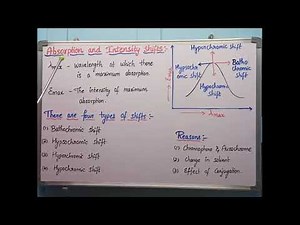 Absorption and Intensity shifts:-
λmax - wavelength at which there
is a maximum absorption.
Emax - The intensity of maximum
absorption.
There are four types of shifts:-
(1) Bathochromic shift
(2) Hypsochromic shift
(3) Hyperchromic shift
(4) Hypochromic shift
Hyperchromic shift
Hypsochr
omic shift
Batho
chromic
shift
Hypochromic
shift
λmax
Reasons:-
(1) Chromophore & Auxochrome
(2) Change in solvent
(3) Effect of Conjugation